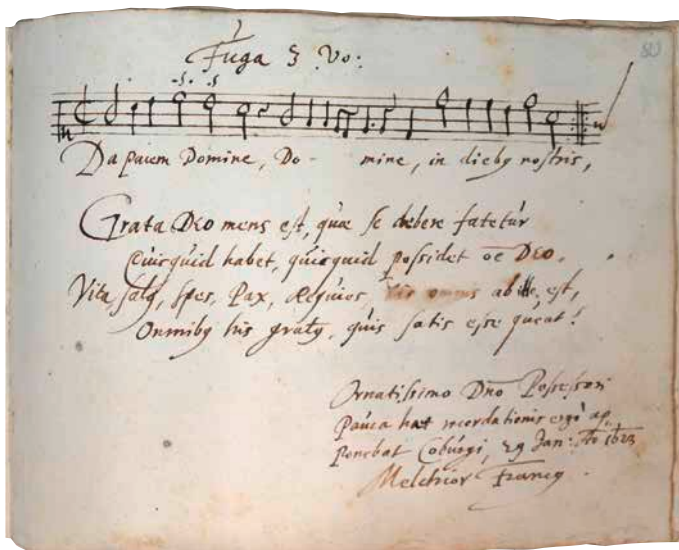 Fuga 3 Vo:
80
Da pacem Domine, Do- mine, in dieby nostris,
Grata DEO mens est, quæ se debere fatetur
Quicquid habet, quicquid possidet DEO.
Vita, saly, spes, Pax, Requies, omnis ab illo est,
Omniby his graty, quis satis esse queat!
Ornatissimo Dno Possessori
Pauca hæc recordationis ergò ap-
ponebat Coburgi, 29 Jan: Ao 1623
Melchior Francy.